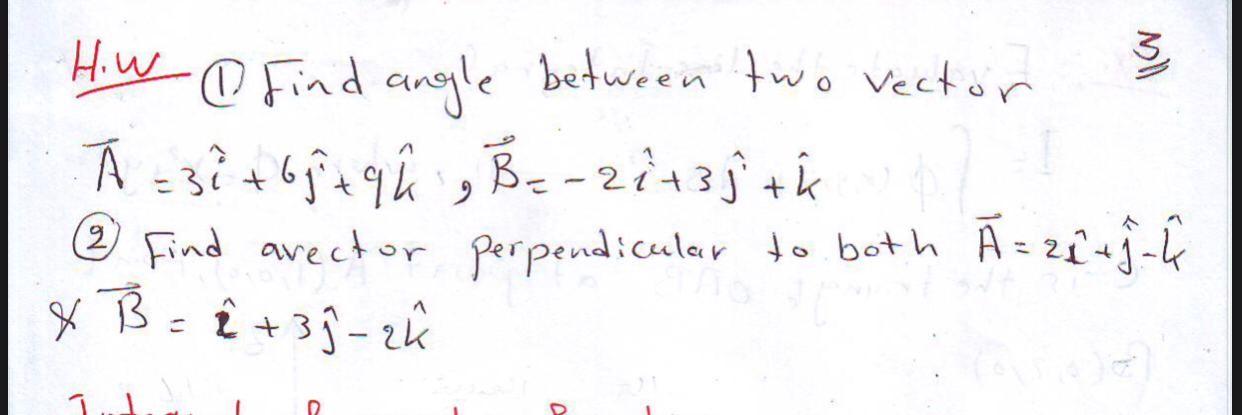 H.W ① Find angle between two vector 3
A⃗ = 3î + 6ĵ + 9k̂ , B⃗ = -2î + 3ĵ + k̂
② Find avector perpendicular to both A⃗ = 2î + ĵ - k̂
& B⃗ = î + 3ĵ - 2k̂